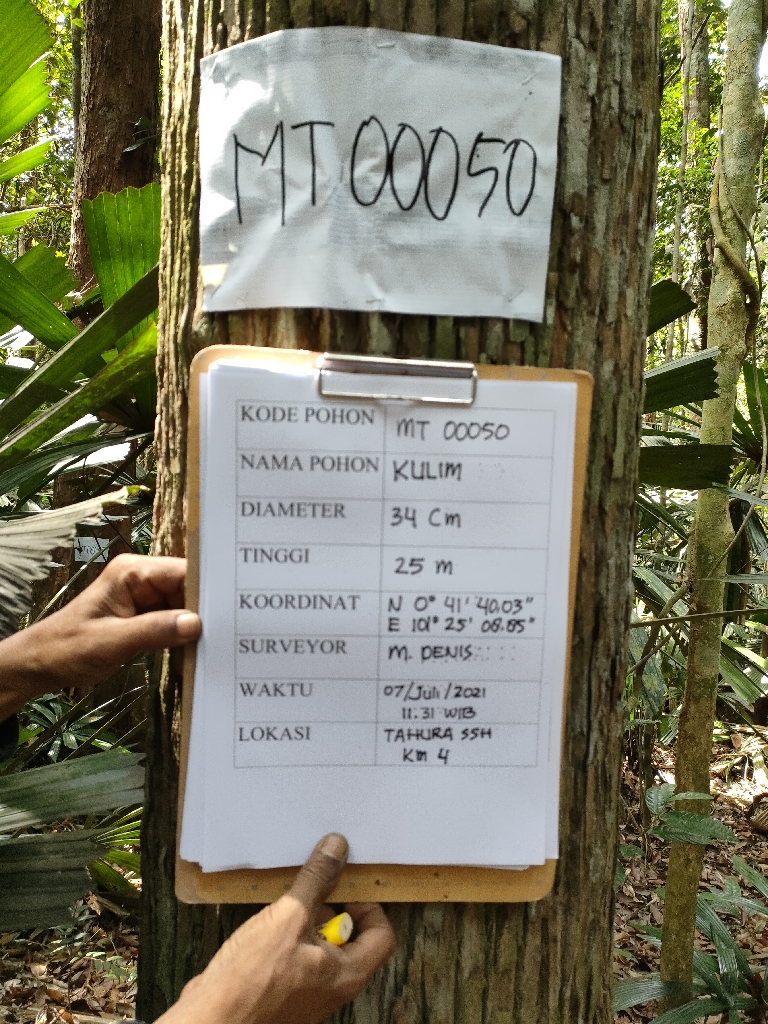 MT 00050
KODE POHON MT 00050
NAMA POHON KULIM
DIAMETER 34 Cm
TINGGI 25 m
KOORDINAT N 0° 41' 40.03"
E 101° 25' 08.85"
SURVEYOR M. DENIS
WAKTU 07/Juli/2021
11.31 WIB
LOKASI TAHURA SSH
Km 4